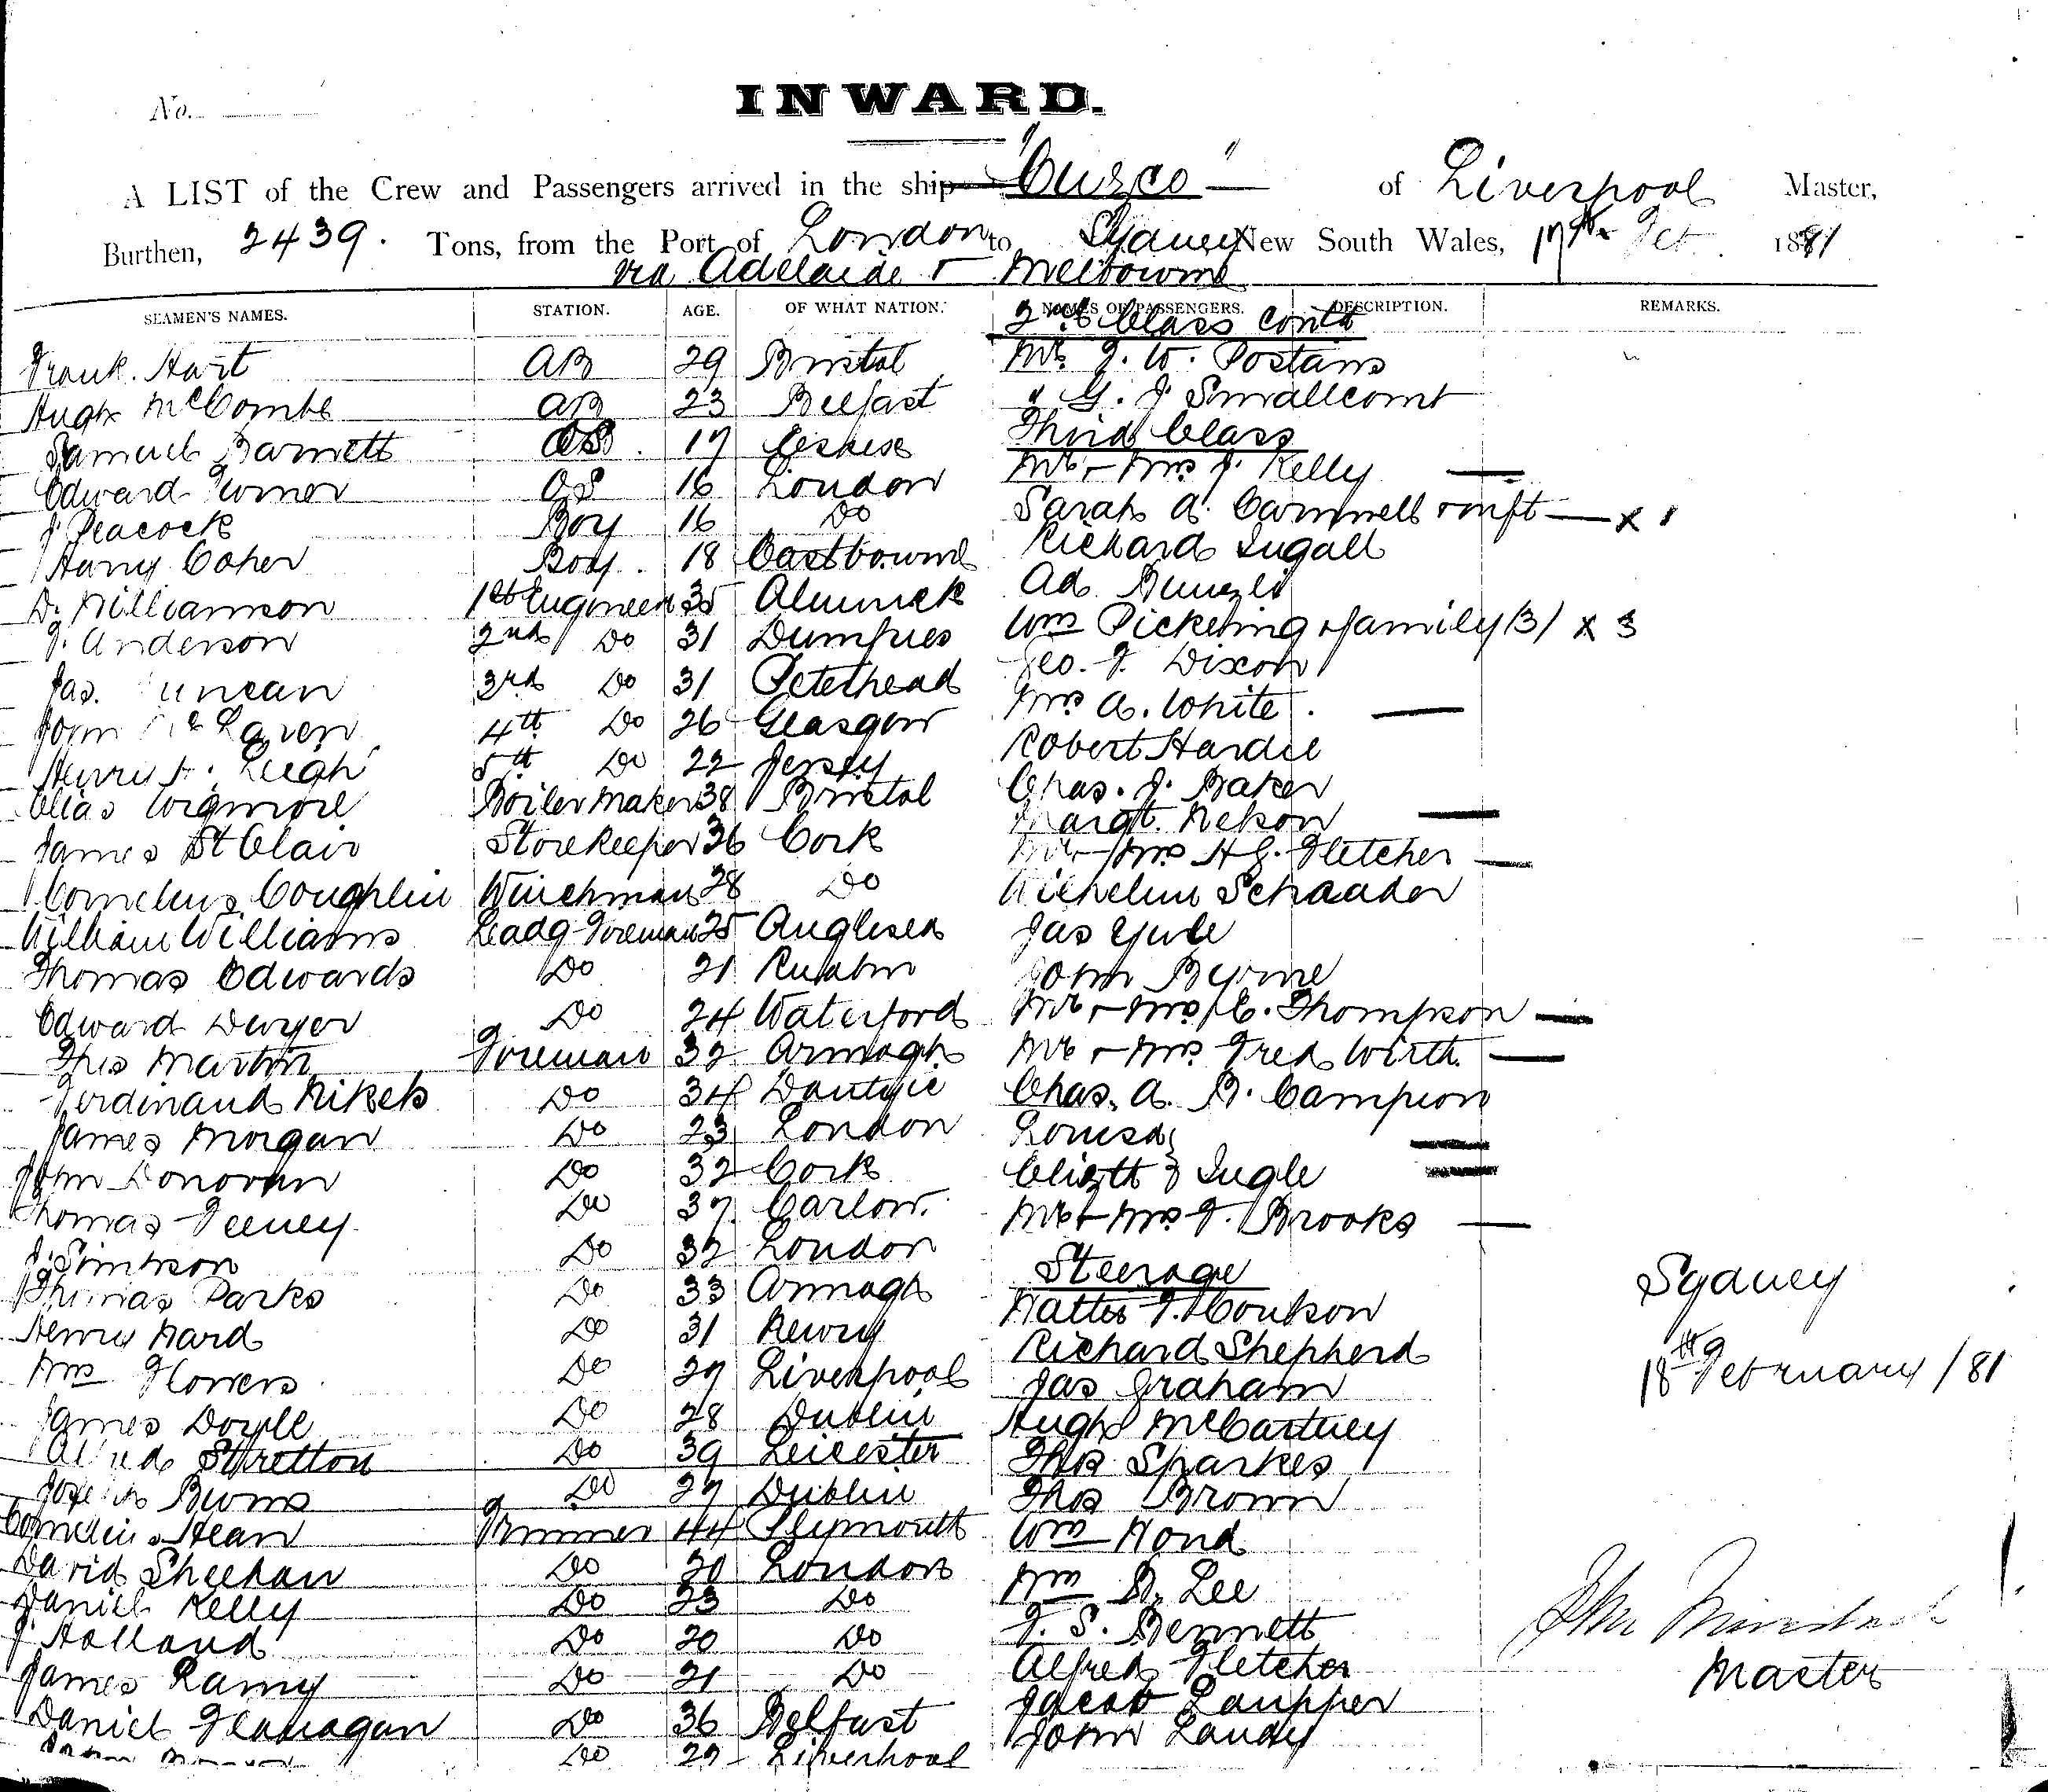 No.
INWARD.
A LIST of the Crew and Passengers arrived in the ship "Cuzco" of Liverpool Master,
Burthen, 2439. Tons, from the Port of London to Sydney New South Wales, 17th Feb 1881
via Adelaide & Melbourne
SEAMEN'S NAMES. STATION. AGE. OF WHAT NATION. NAMES OF PASSENGERS. DESCRIPTION. REMARKS.
2nd Class contd
Frank Hart AB 29 Bristol Mr. J. W. Postans
Hugh McCombe AB 23 Belfast " G. J. Smallcomb
Samuel Barnett OS 17 Third Class
Edward Turner OS 16 London Mr & Mrs J. Kelly
J Peacock Boy 16 Do Sarah A. Cammell & inft x 1
Harry Coper Boy 18 Eastbourne Richard Sugall
D. Williamson 1st Engineer 35 Alnwick Ad.
J. Anderson 2nd Do 31 Dumfries Wm Pickering & family (3) x 3
Jas. Duncan 3rd Do 31 Peterhead Geo. J. Dixon
John McLaren 4th Do 26 Glasgow Mrs A. White
Henry A. Leigh 5th Do 22 Jersey Robert Hardie
Elias Wigmore Boiler Maker 38 Bristol Chas. J. Baker
James St Clair Storekeeper 36 Cork Margt. Nelson
Cornelius Coughlin Winchman 28 Do Mr & Mrs H G. Fletcher
William Williams Leadg Fireman 25 Anglesea Wilhelm Schrader
Thomas Edwards Do 21 Ruabon Jas Yule
Edward Dwyer Do 24 Waterford John Byrne
Thos Martin Fireman 32 Armagh Mr & Mrs C. Thompson
Ferdinand Nikels Do 34 Dantzic Mr & Mrs Fred Wirth
James Morgan Do 23 London Chas. A. B. Campion
John Donovan Do 32 Cork Louisa
Thomas Feeney Do 37 Carlow Elizth } Ingle
J. Simpson Do 32 London Mr & Mrs J. Brooks
Thomas Parks Do 33 Armagh Steerage
Henry Ward Do 31 Newry Walter J. Coulson
Wm Flowers Do 27 Liverpool Richard Shepherd
James Doyle Do 28 Dublin Jas Graham
Alfred Stretton Do 39 Leicester Hugh McCartney
Joseph Burns Do 27 Dublin Thos Sparkes
Cornelius Hean Trimmer 44 Plymouth Thos Brown
David Sheehan Do 20 London Wm Hond
Daniel Kelly Do 23 Do Wm D. Lee
J Holland Do 20 Do J. S. Bennett
James Ramy Do 21 Do Alfred Fletcher
Daniel Flanagan Do 36 Belfast Jacob Laupper
Do 27 Liverpool John Landy
Sydney
18th February / 81
John
Master